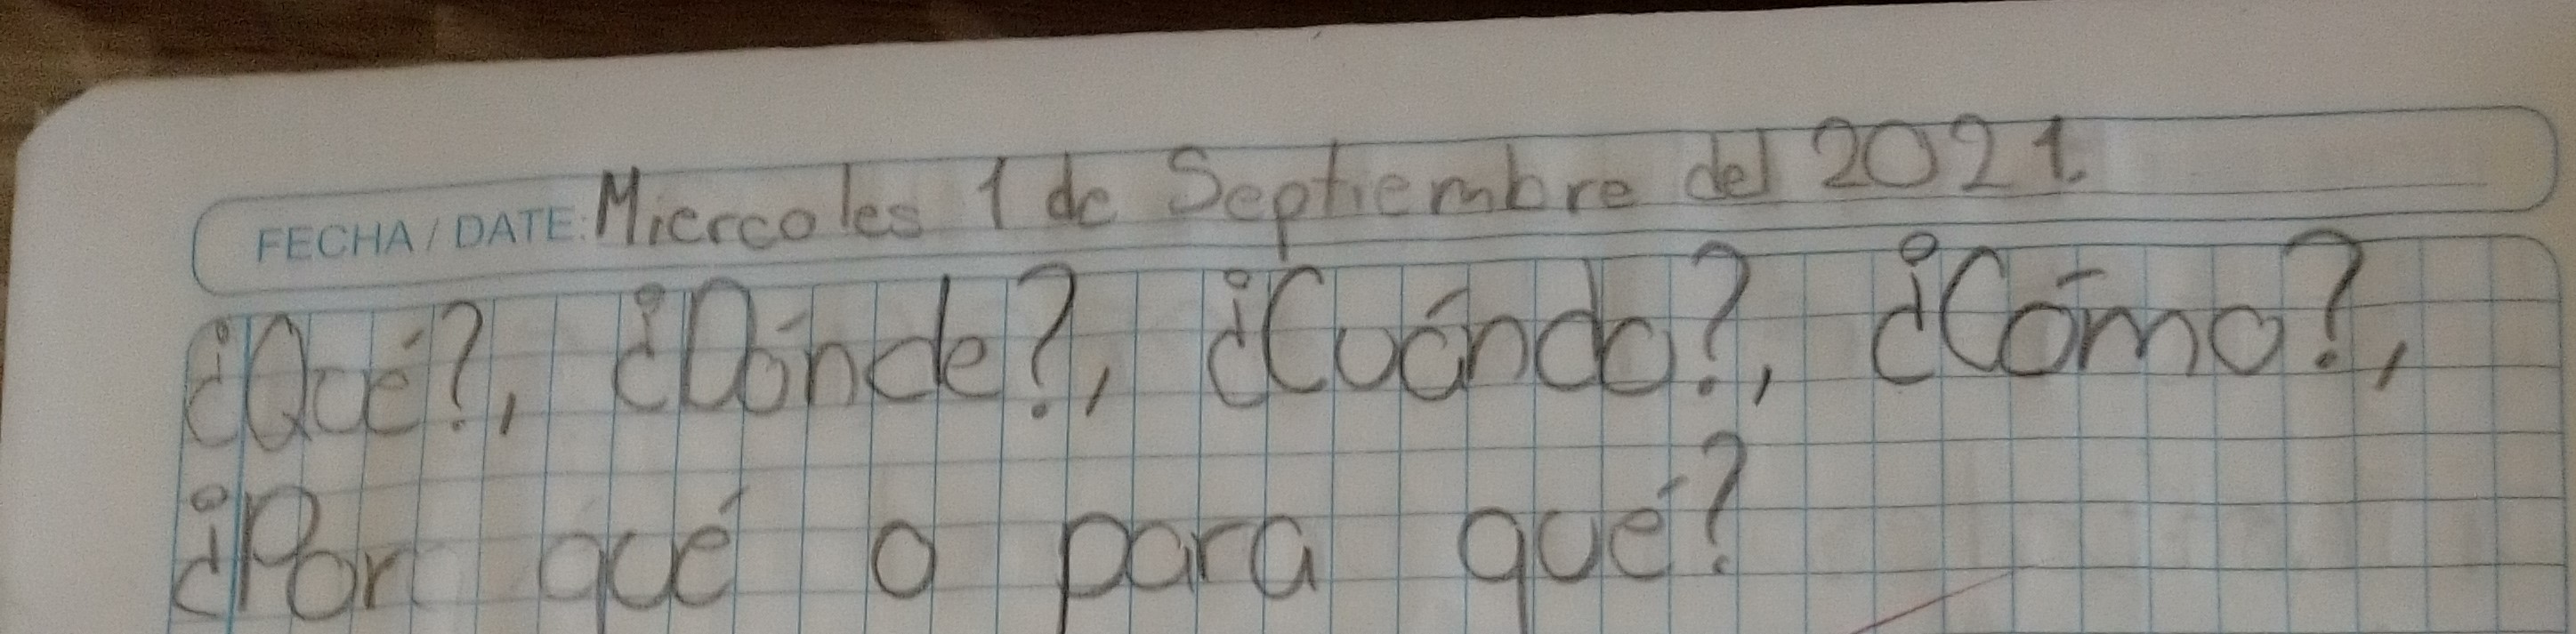 FECHA / DATE: Miercoles 1 de Septiembre del 2021.
¿Qué?, ¿Dónde?, ¿Cuándo?, ¿Cómo?,
¿Por qué o para qué?